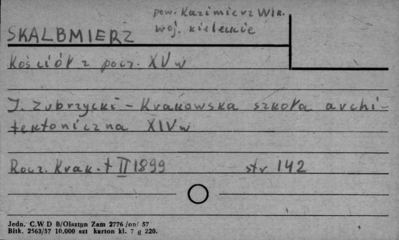 pow. Kazimierz Wlk.
SKALBMIERZ woj. kieleckie
Kościół z pocz. XV w
J. Zubrzycki - Krakowska szkoła archi-
tektoniczna XIV w
Rocz. Krak. t II 1899 str 142
Jedn. C.W.D B/Olsztyn Zam 2776 /on/ 57
Bltk. 2563/57 10.000 szt karton kl. 7 g 220.